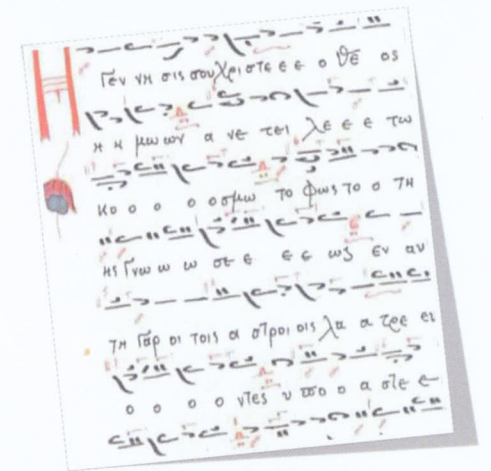 Γεν νη σις σου χρι στε ε ε ο θε ος
η η μω ων α νε τει λε ε ε τω
κο ο ο ο ο σμω το φως το ο τη
ης Γνω ω ω σε ε ε ε ως εν αυ
τη γαρ οι τοις α στροι οις λα α τρε ει
ο ο ο ο ντες υ πο ο α στε ε